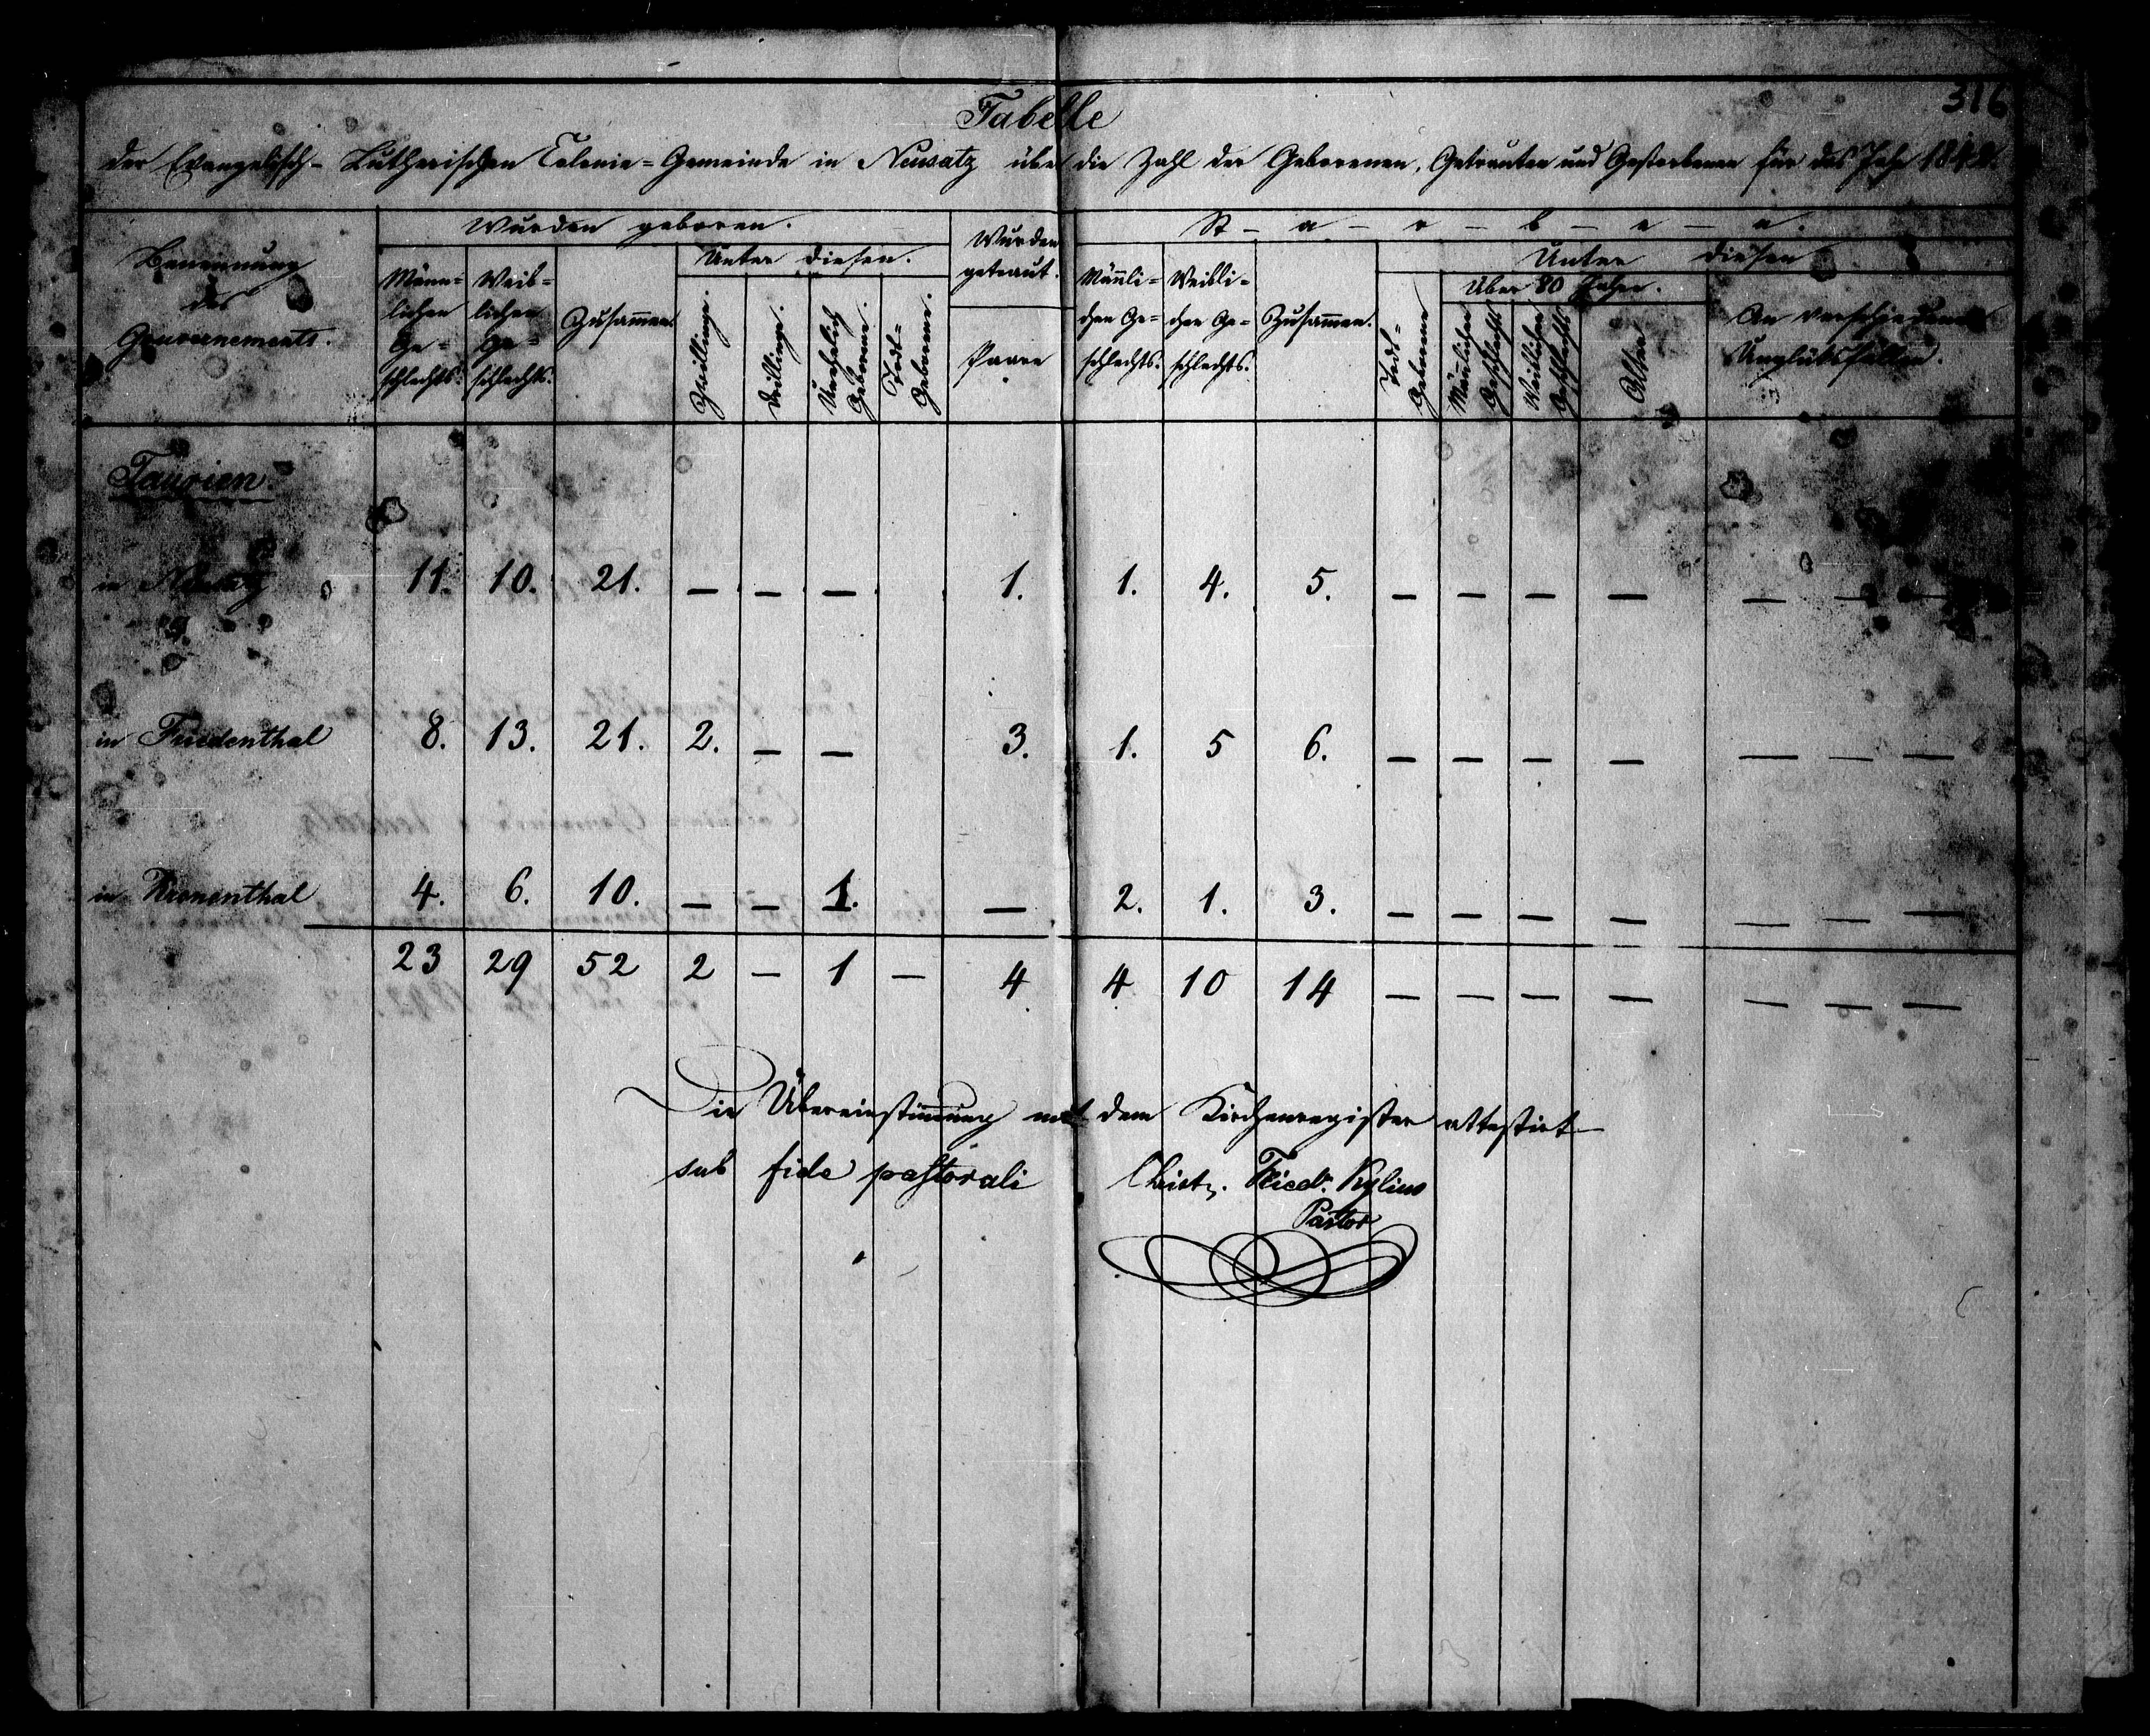 316
Tabelle
der Evangelisch-Lutherischen Colonie-Gemeinde in Neusatz über die Zahl der Geborenen, Getrauten und Gestorbenen für das Jahr 1842.
Benennung des Gouvernements.
Wurden geboren.
Männ-lichen Ge-schlechts.
Weib-lichen Ge-schlechts.
Zusam̄en.
Unter diesen.
Zwillinge.
Drillinge.
Unehelich Geborene.
Todt-Geborene.
Wurden getraut.
Paare
St-a-r-b-e-n.
Män̄li-chen Ge-schlechts.
Weibli-chen Ge-schlechts.
Zusam̄en.
Unter diesen
Todt-Geborene
Über 80 Jahre.
Män̄lichen Geschlechts
Weiblichen Geschlechts
Alter
An verschiedenen Unglüksfällen.
Taurien.
in Neusatz 11. 10. 21. — — — 1. 1. 4. 5. — — — — — — —
in Friedenthal 8. 13. 21. 2. — — 3. 1. 5 6. — — — — — — —
in Kronenthal 4. 6. 10. — — 1. — 2. 1. 3. — — — — — — —
23 29 52 2 — 1 — 4 4 10 14 — — — — — — —
Die Übereinstim̄ung mit dem Kirchenregister attestirt
sub fide pastorali Christ. Friedr. Kylius
Pastor